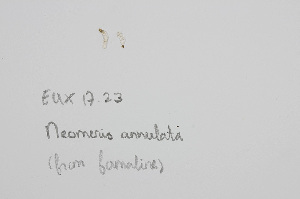 EUX 17.23
Neomeris annulata
(from formaline)